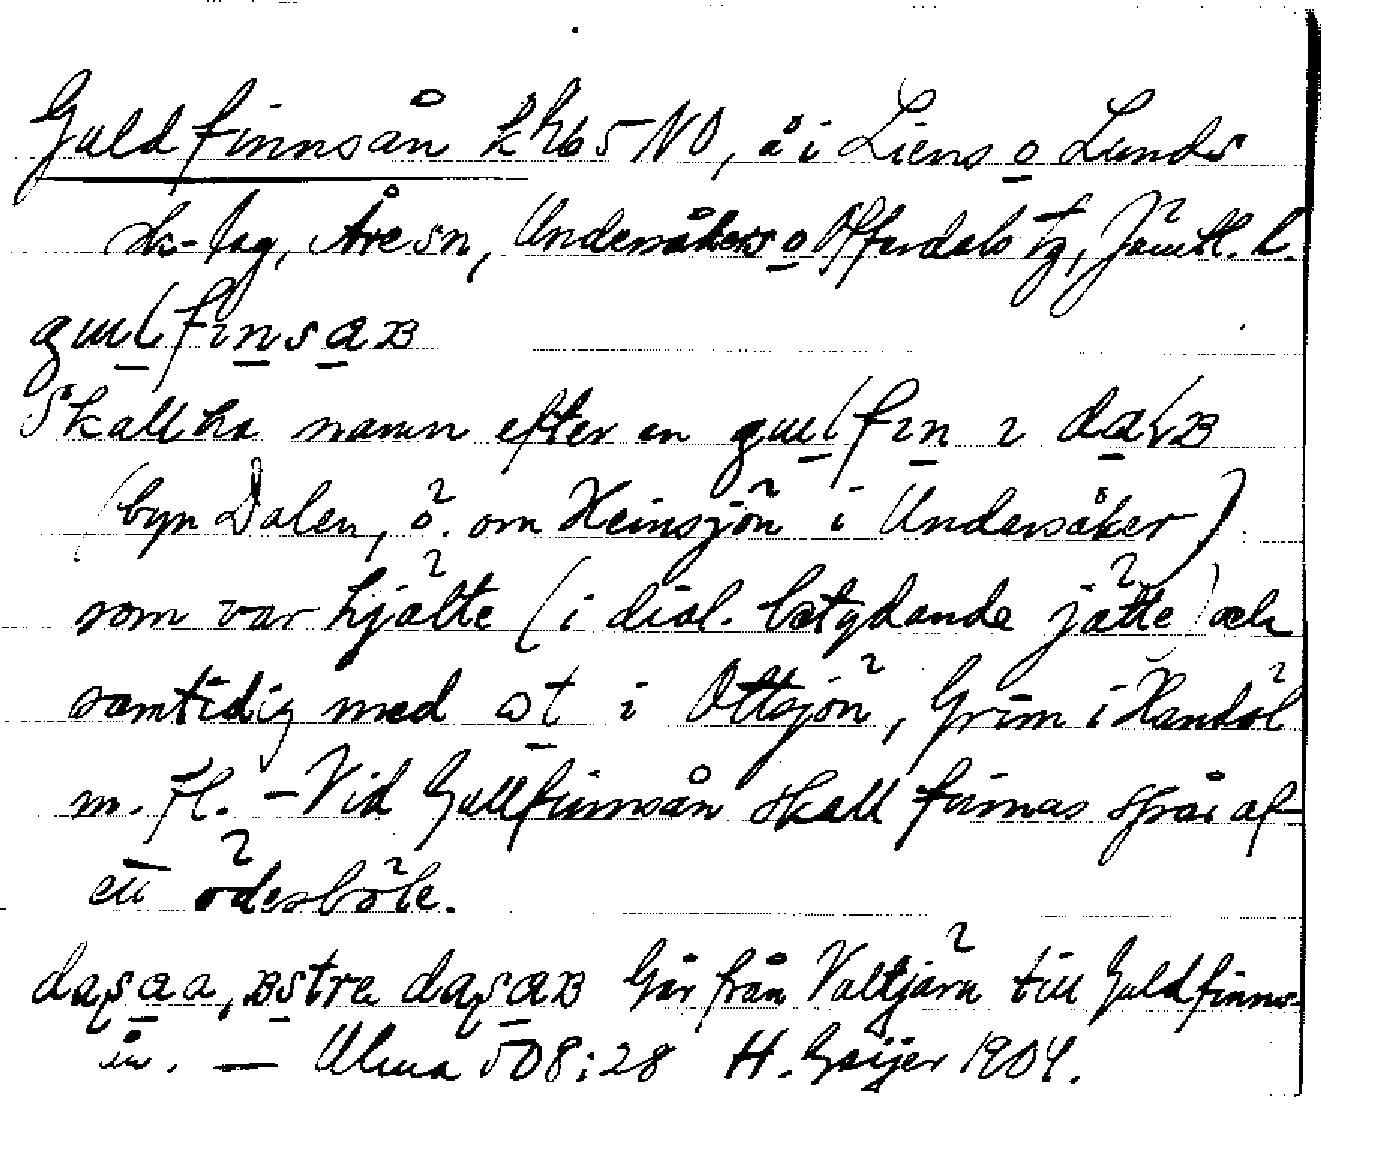 Guldfinnsån Zh65NO, å i Liens o Lunds
sk-lag, Åre sn, Undersåkers o Offerdals tg, Jämtl. l.
gulfinsaB
Skall ha namn efter en gulfin i dalB
(byn Dalen, ö. om Heinsjön i Undersåker)
som var hjälte (i dial. betydande jätte) och
samtidig med at i Ottsjön, Grim i Handöl
m. fl. – Vid Gullfinnsån skall finnas spår af
ett ödesböle.
daqsaa, Bstre daqsaB Går från Valtjärn till Guldfinns-
ån. — Ulma 508:28 H. Geijer 1904.